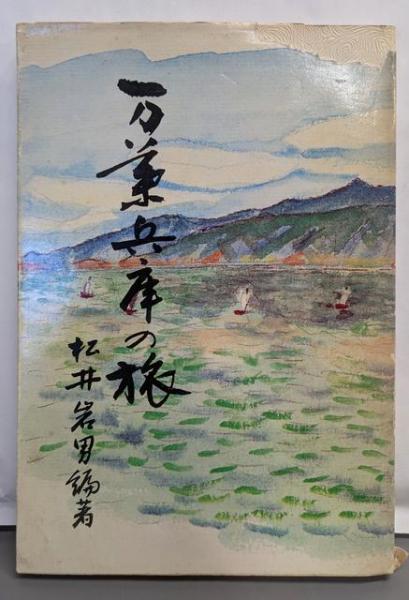 万葉兵庫の旅
松井岩男編著